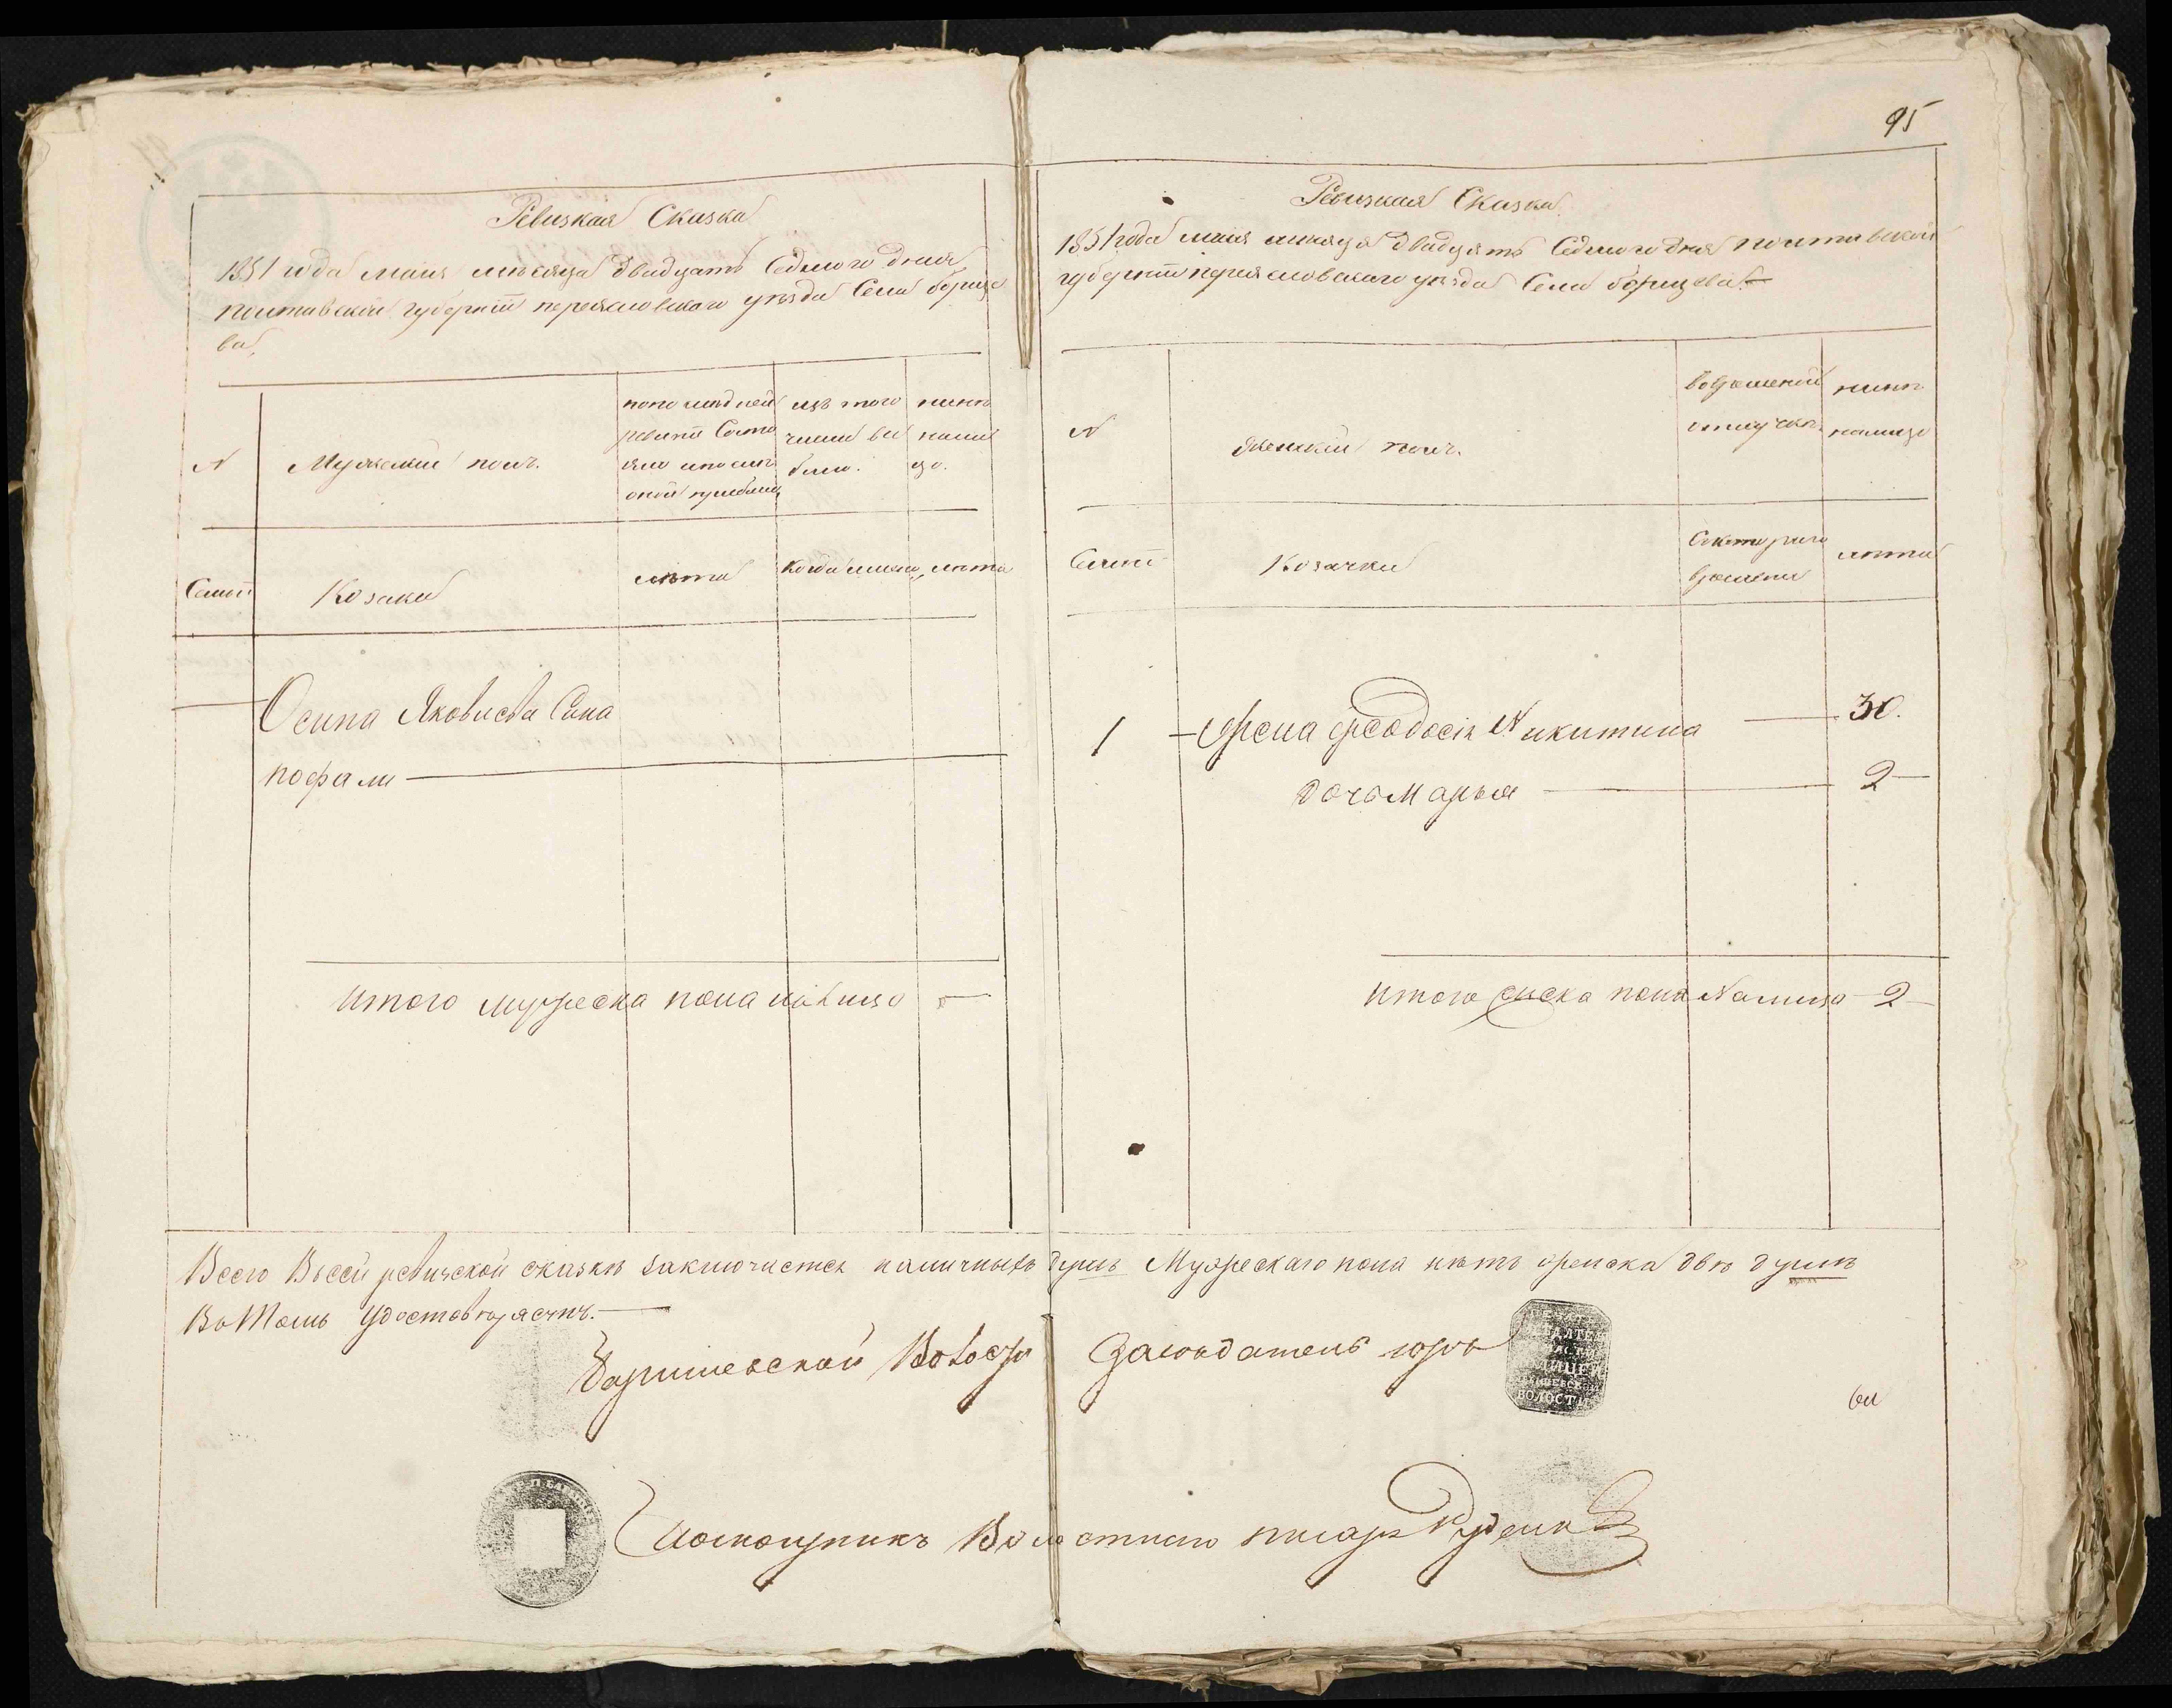 95
Ревизкая Сказка
1851 года маия месяца двадцать Седмого дня
полтавской губернїи переясловского уѣзда Села борище
ва
N
Мужеский полъ.
по последней
ревизїи Состо
яло и после
оной прибыло
изъ того
числа вы
было.
нинѣ
нали
цо.
Семїи
Козаки
лѣта
когда имено
лѣта
Осипа Яковлева Сына
Пофали
итого мужеска пола налицо
Ревизкая Сказка
1851 года маия месяца двадцать Седмого дня полтавской
губернїи переясловского уѣзда Села борищева
N
Женский полъ.
вовременной
отлучкѣ.
нинѣ
налицо
Семїи
Козачки
Скоторого
времени
лѣта
1 Жена Феодосія Никитина 30.
дочь Марья 2
итого женска пола Налицо 2
Всего Въсей ревизской сказкѣ заключается наличныхъ душъ Мужескаго пола нѣтъ женска двѣ душѣ
ВоТомъ Удостоверяетъ.
Заседатель
ВОЛОСТИ
Помощникъ Волостного писаря Руденко